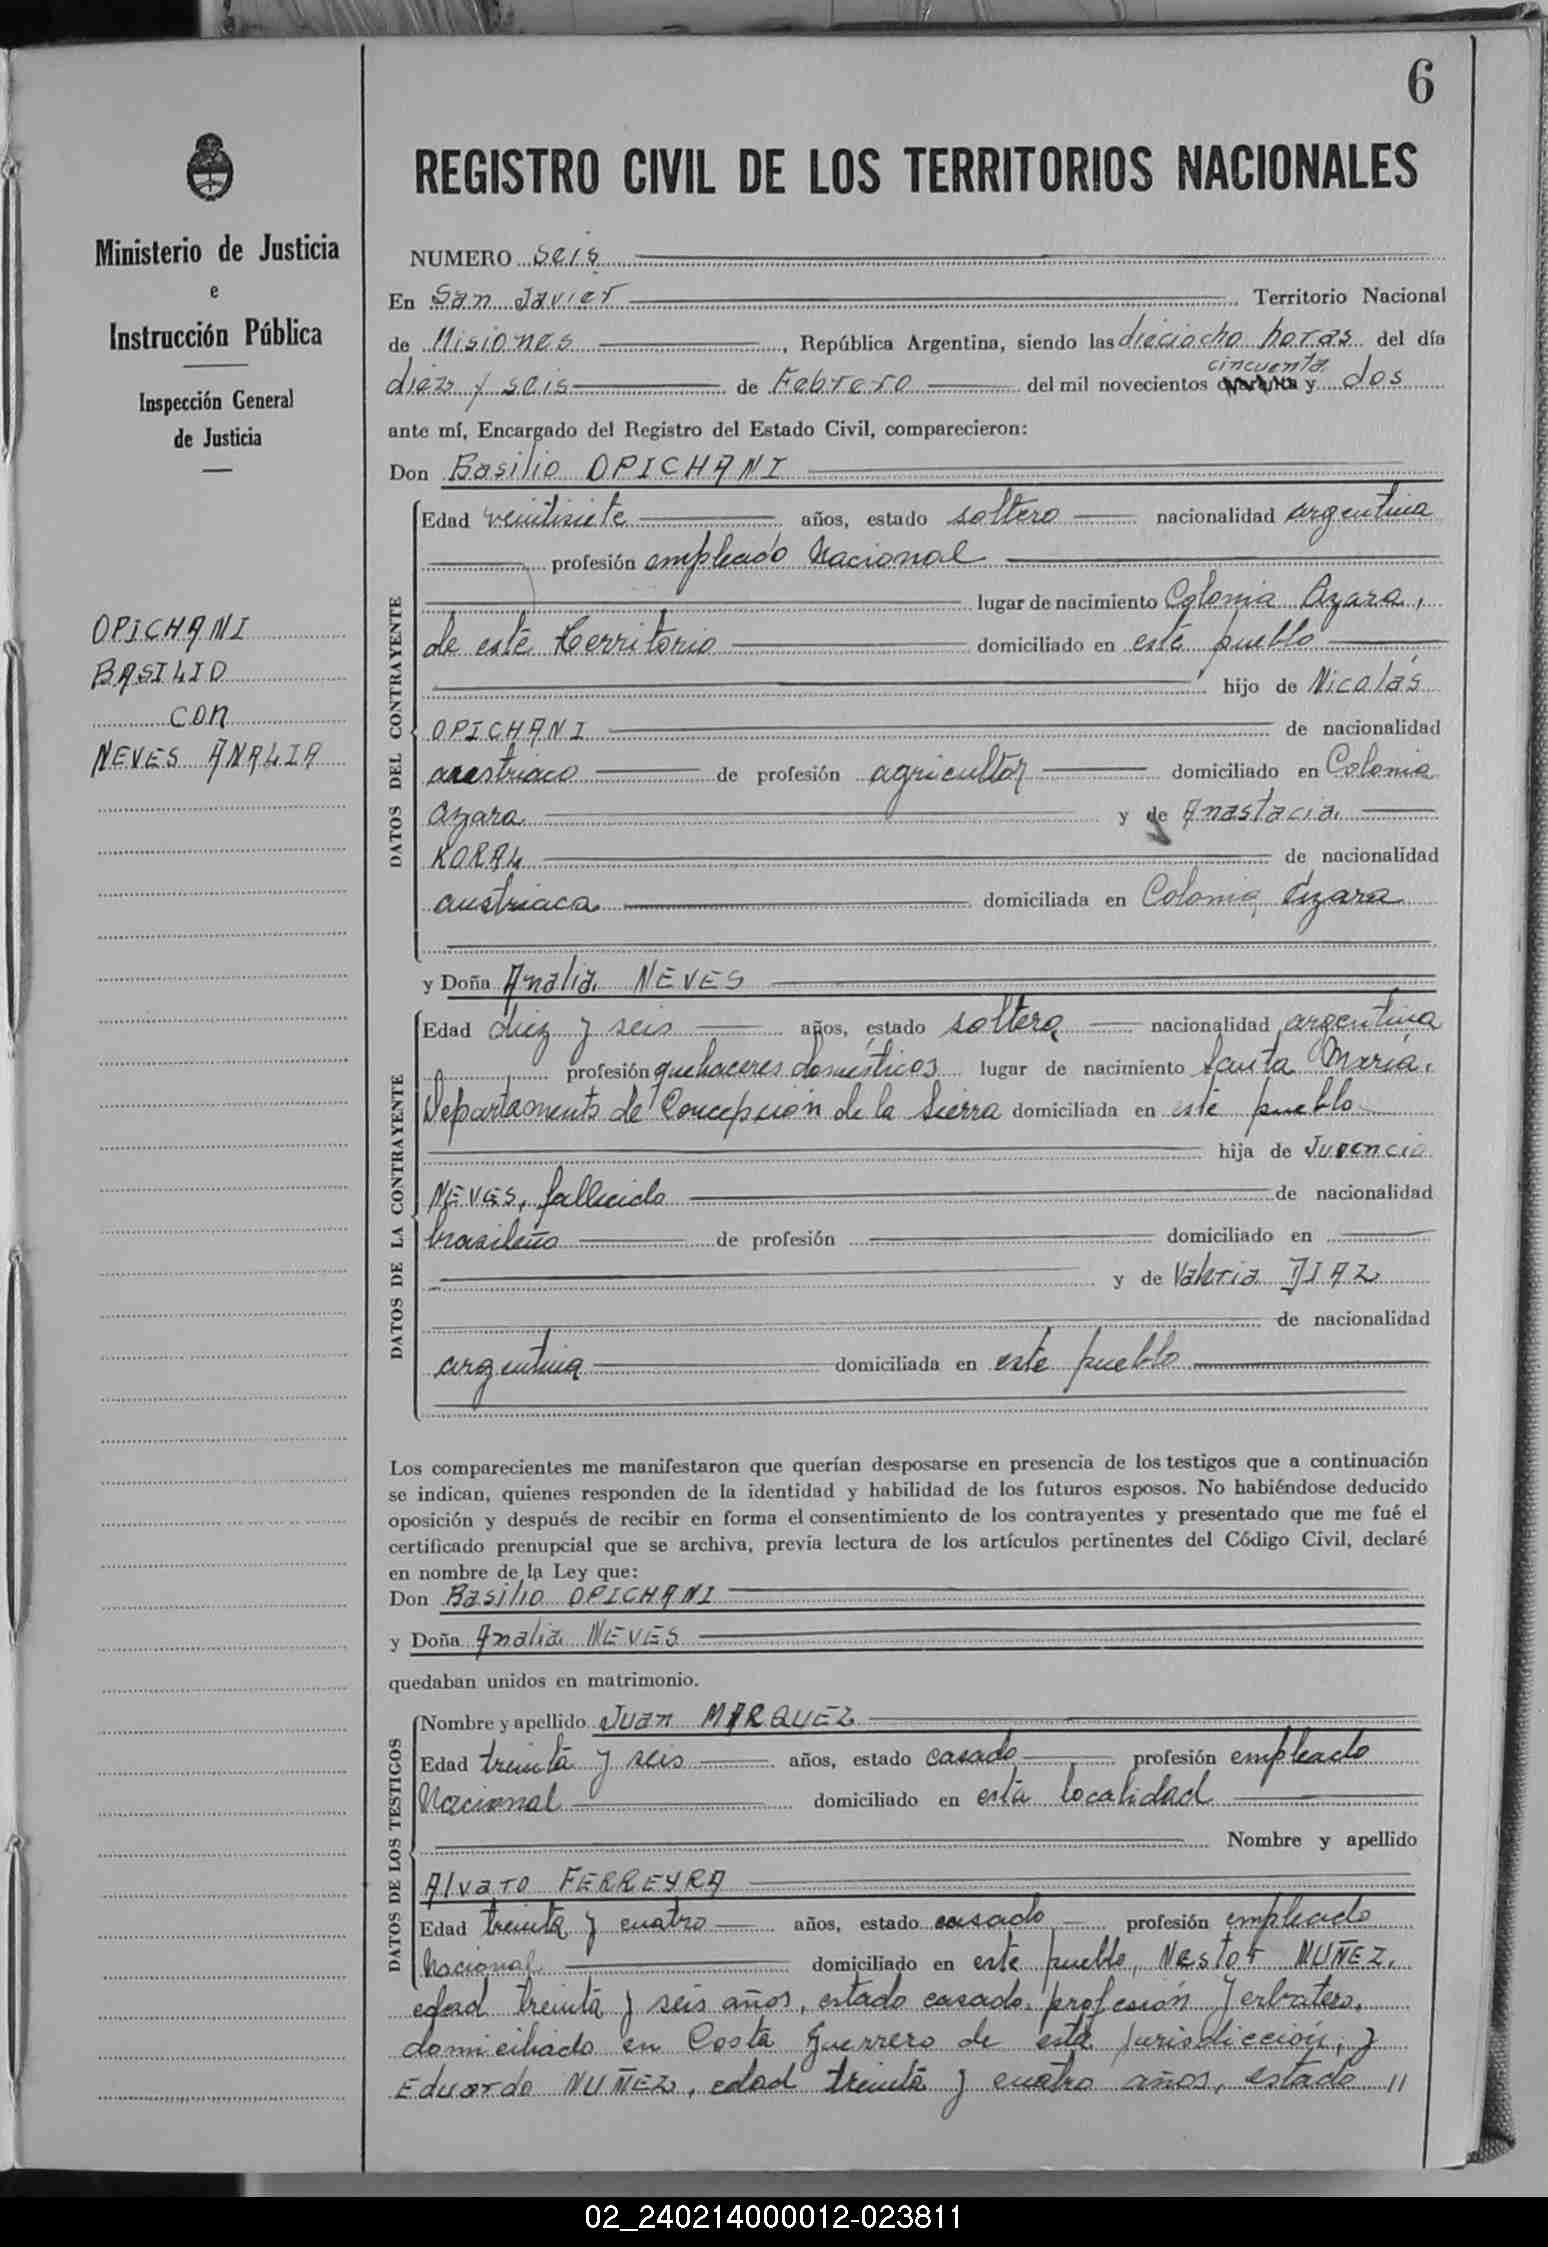 6
REGISTRO CIVIL DE LOS TERRITORIOS NACIONALES
Ministerio de Justicia
e
Instrucción Pública
Inspección General
de Justicia
OPICHANI
BASILIO
CON
NEVES ANALIA
NUMERO seis
En San Javier Territorio Nacional
de Misiones, República Argentina, siendo las dieciocho horas del día
cincuenta
diez y seis de Febrero del mil novecientos y dos
ante mí, Encargado del Registro del Estado Civil, comparecieron:
Don Basilio OPICHANI
DATOS DEL CONTRAYENTE
Edad veintisiete años, estado soltero nacionalidad argentina
profesión empleado Nacional
lugar de nacimiento Colonia Azara,
de este Territorio domiciliado en este pueblo
hijo de Nicolás
OPICHANI de nacionalidad
austriaco de profesión agricultor domiciliado en Colonia
Azara y de Anastacia
KORAL de nacionalidad
austriaca domiciliada en Colonia Azara
y Doña Analia NEVES
DATOS DE LA CONTRAYENTE
Edad diez y seis años, estado soltera nacionalidad argentina
profesión quehaceres domésticos lugar de nacimiento Santa María,
Departamento de Concepción de la Sierra domiciliada en este pueblo
hija de Juvencio
NEVES, fallecido de nacionalidad
brasileño de profesión domiciliado en
y de Valeria DIAZ
de nacionalidad
argentina domiciliada en este pueblo
Los comparecientes me manifestaron que querían desposarse en presencia de los testigos que a continuación
se indican, quienes responden de la identidad y habilidad de los futuros esposos. No habiéndose deducido
oposición y después de recibir en forma el consentimiento de los contrayentes y presentado que me fué el
certificado prenupcial que se archiva, previa lectura de los artículos pertinentes del Código Civil, declaré
en nombre de la Ley que:
Don Basilio OPICHANI
y Doña Analia NEVES
quedaban unidos en matrimonio.
DATOS DE LOS TESTIGOS
Nombre y apellido Juan MARQUEZ
Edad treinta y seis años, estado casado profesión empleado
Nacional domiciliado en esta localidad
Nombre y apellido
Alvaro FERREYRA
Edad treinta y cuatro años, estado casado profesión empleado
Nacional domiciliado en este pueblo, Nestor NUÑEZ,
edad treinta y seis años, estado casado, profesión yerbatero,
domiciliado en Costa Guerrero de esta jurisdicción, y
Eduardo NUÑEZ, edad treinta y cuatro años, estado //
02_240214000012-023811